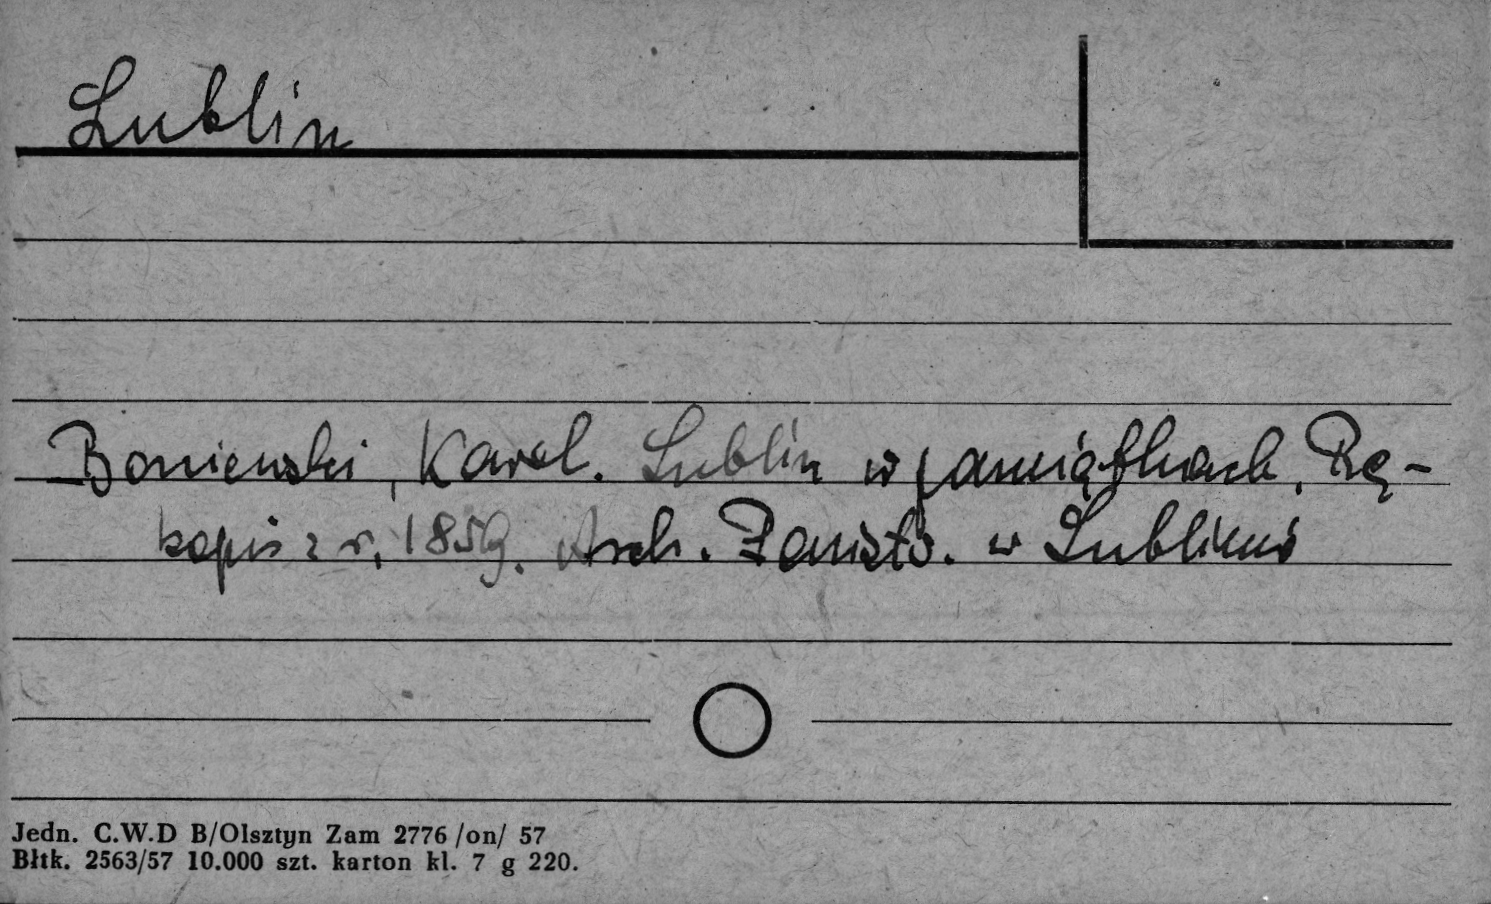 Lublin
Boniewski, Karol. Lublin w pamiątkach. Rę-
kopis z r. 1859. Arch. Państw. w Lublinie
Jedn. C.W.D B/Olsztyn Zam 2776 /on/ 57
Błtk. 2563/57 10.000 szt. karton kl. 7 g 220.